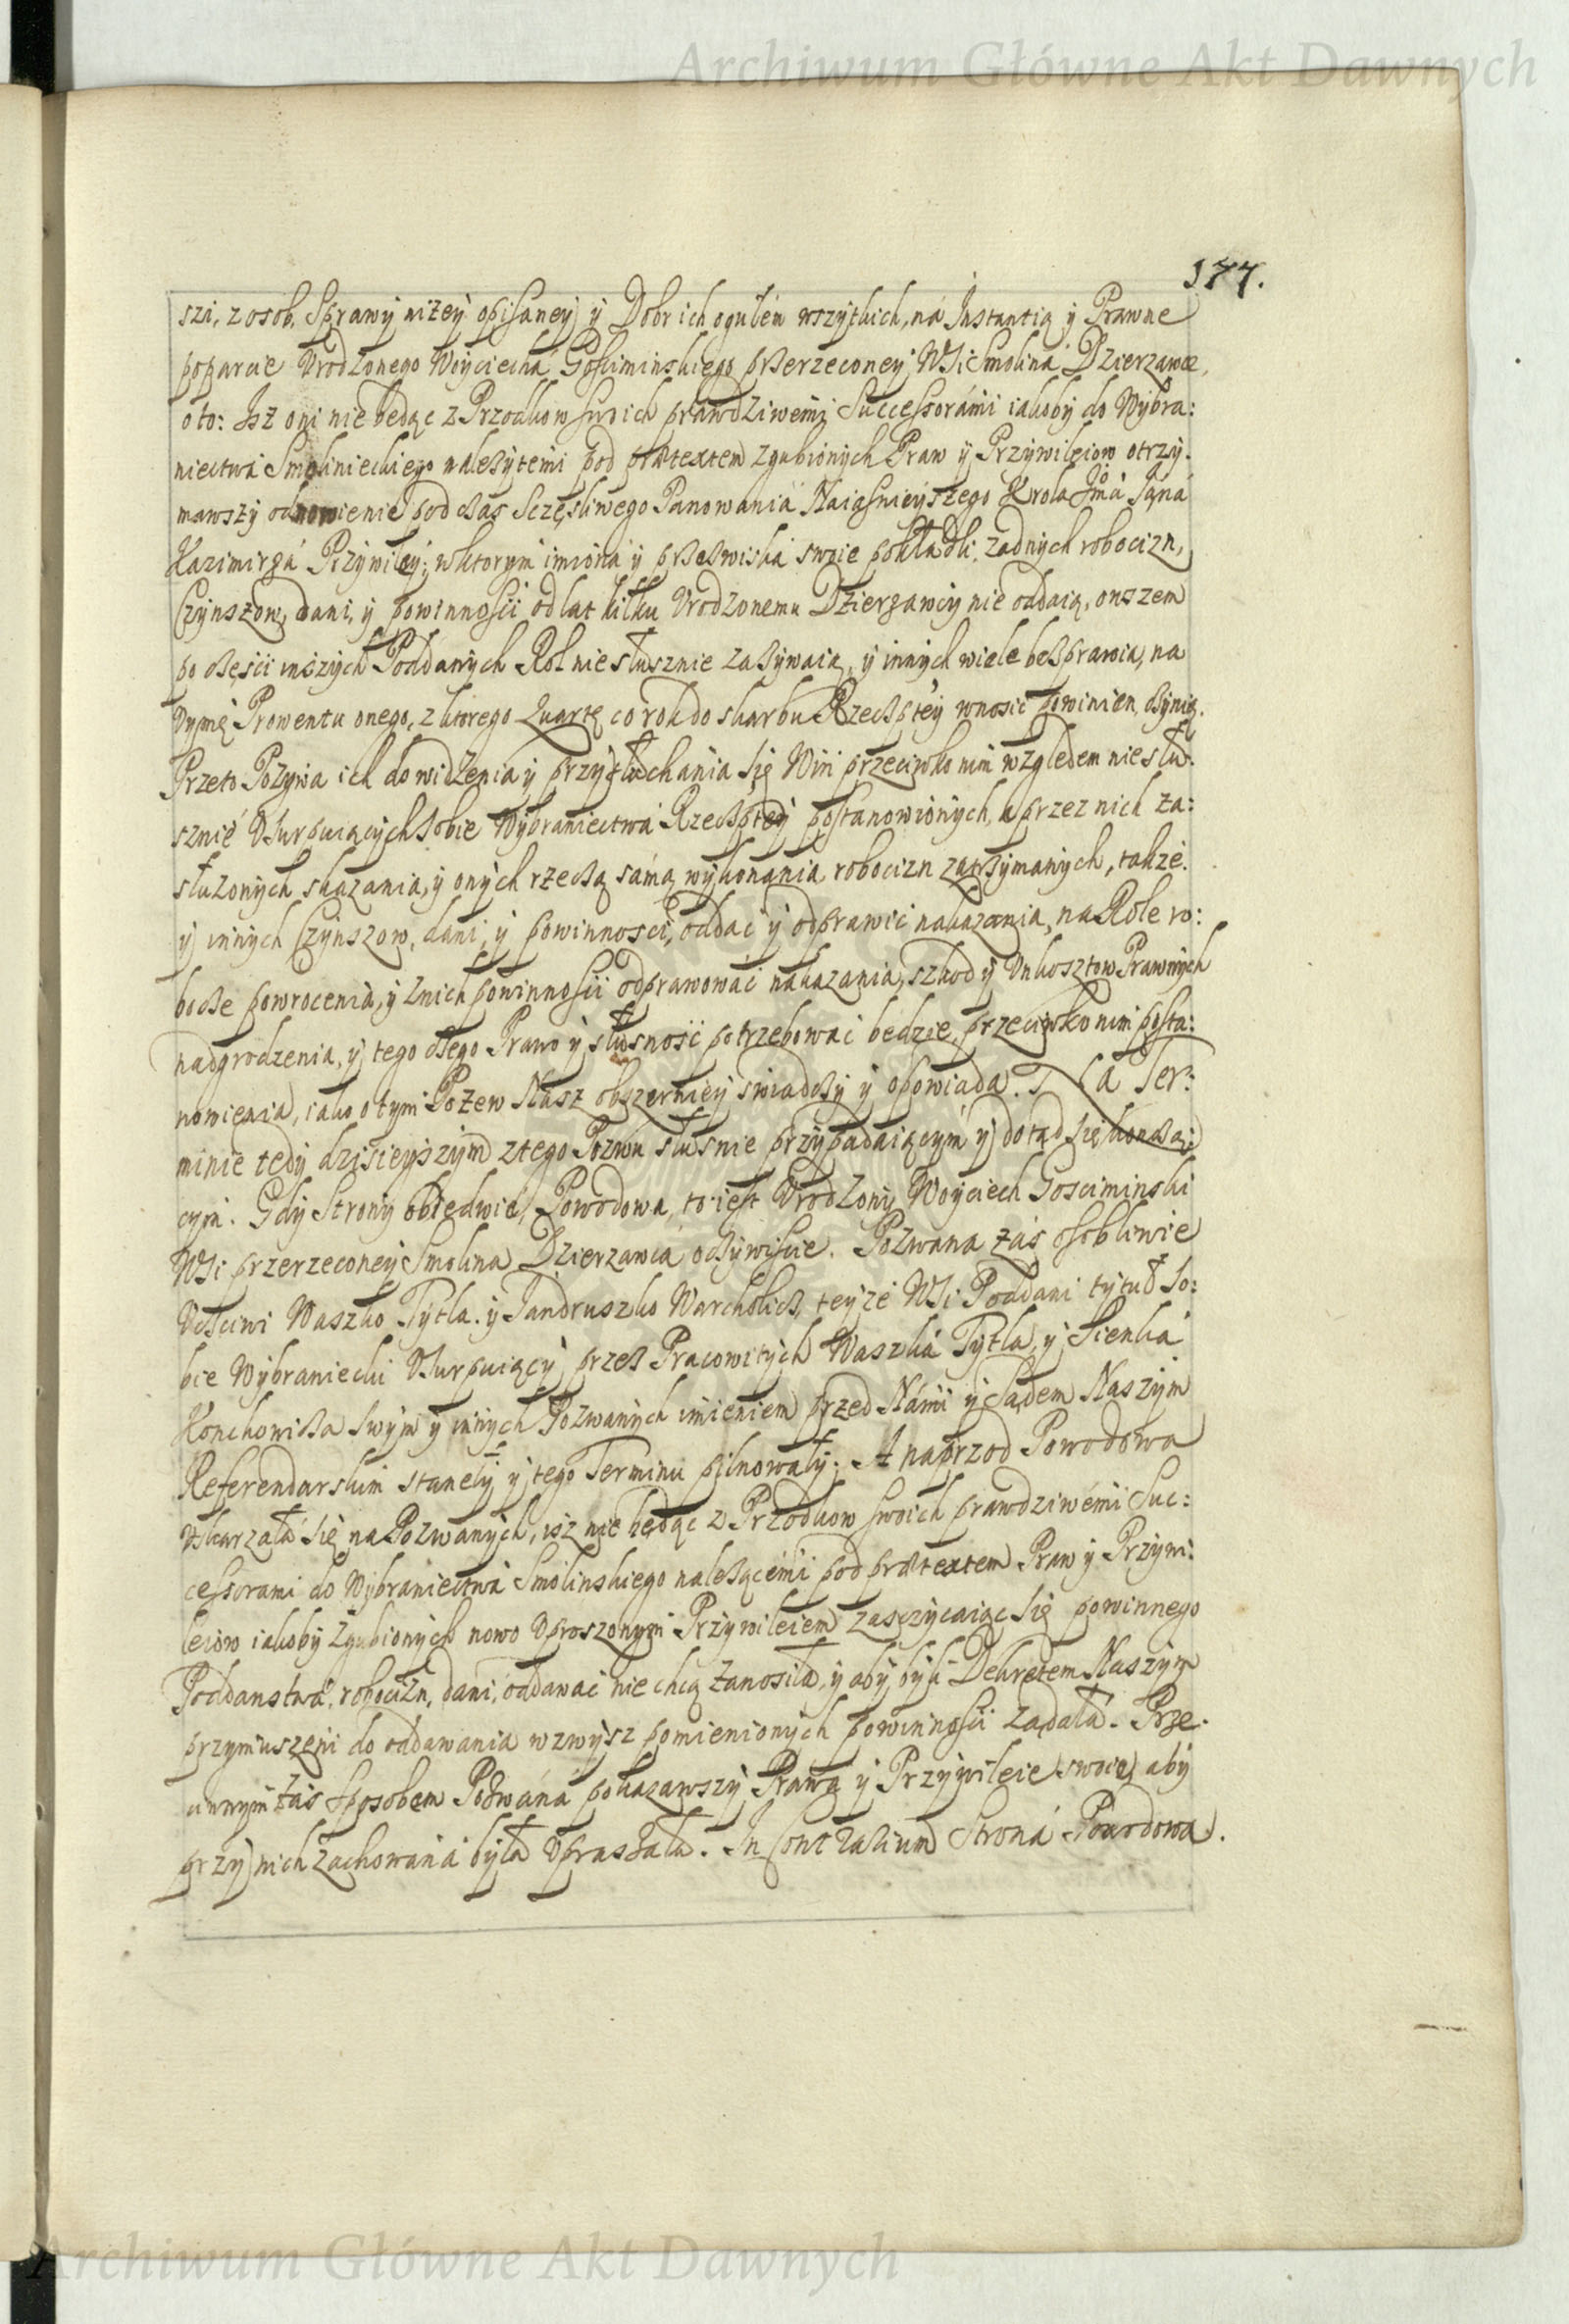 Archiwum Główne Akt Dawnych
177.
szi, z osób, Sprawy niżey opisaney y Dobr ich ogułem wszytkich, ná Instantią y Prawne
poparcie Vrodzonego Woyciechá Gosciminskiego przerzeczoney Wsi Smolina Dzierzawce,
oto: Isz oni nie będąc z Przodkow swoich prawdziwemi Successorámi iakoby do Wybra:
niectwá Smolinieckiego należytemi pod prætextem zgubionych Praw y Przywileiow otrzy:
mawszy odnowienie pod czas Sczęsliwego Panowania Naiaśnieyszego Krola Jmá Jąná
Kazimirzá Przywiley, w ktorym imioná y przezwiská swoie pokładli, żadnych robocizn,
Czynszow, dani, y powinnosci od lat kilku Vrodzonemu Dzierzawcy nie oddaią, owszem
po części inszych Poddanych Rol niesłusznie zażywaią, y innych wiele bezprawia, na
Dyme Prowentu onego, z ktorego Quartę co rok do skarbu Rzeczptey wnosić powinien, czynią.
Przeto Pozywa ich do widzenia y przysłuchania się Win przeciwko nim względem niesłu:
sznie Vsurpuiących sobie Wybraniectwá Rzeczptey postanowionych, a przez nich za:
służonych skazania, y onych rzeczą samą wykonania, robocizn zatrzymanych, także
y innych Czynszow, dani, y powinnosci, oddać y odprawić nakazania, na Role ro:
bocze powrocenia, y z nich powinnosci odprawować nakazania, szkod y Vnkosztow Prawnych
nadgrodzenia, y tego czego Prawo y słusność potrzebować będzie, przeciwko nim posta:
nowienia, iako o tym Pozew Nasz obszerniey swiadczy y opowiada. Ná Ter:
minie tedy dzisieyszym z tego Pozwu słusnie przypadaiącym y dotąd się kończą:
cym. Gdy Strony obiedwie, Powodowa, to iest Vrodzony Woyciech Gosciminski
Wsi przerzeczoney Smolina Dzierzawcá oczywiscie. Pozwana zás osobliwie
Vcściwi Waszko Tytla. y Jandruszko Warcholicz, teyże Wsi Poddani tytuł so:
bie Wybraniecki Vsurpuiący przez Pracowitych Waszká Tytla, y Sienká
Konchowicza Swym y innych Pozwanych imieniem przed Námi y Sądem Naszym
Referendarskim stanęły y tego Terminu pilnowały. A naprzod Powodowa
Vskarzałá się na Pozwanych, isz nie będąc z Przodkow swoich prawdziwémi Suc:
cessorami do Wybraniectwá Smolinskiego należącémi pod prætextem Praw y Przywi:
leiow iakoby zgubionych nowo Vproszonym Przywileiem zasczycaiąc się powinnego
Poddanstwá, robocizn, dani, oddawać nie chcą zanosiłá, y aby byli Dekretem Naszym
przymuszeni do oddawania wzwysz pomienionych powinnosci żądałá. Prze:
ciwnym zás sposobem Pozwáná pokazawszy Prawa y Przywileie swoie, aby
przy nich zachowaná byłá Vpraszałá. In Contrarium Stroná Powodowa.
Archiwum Główne Akt Dawnych